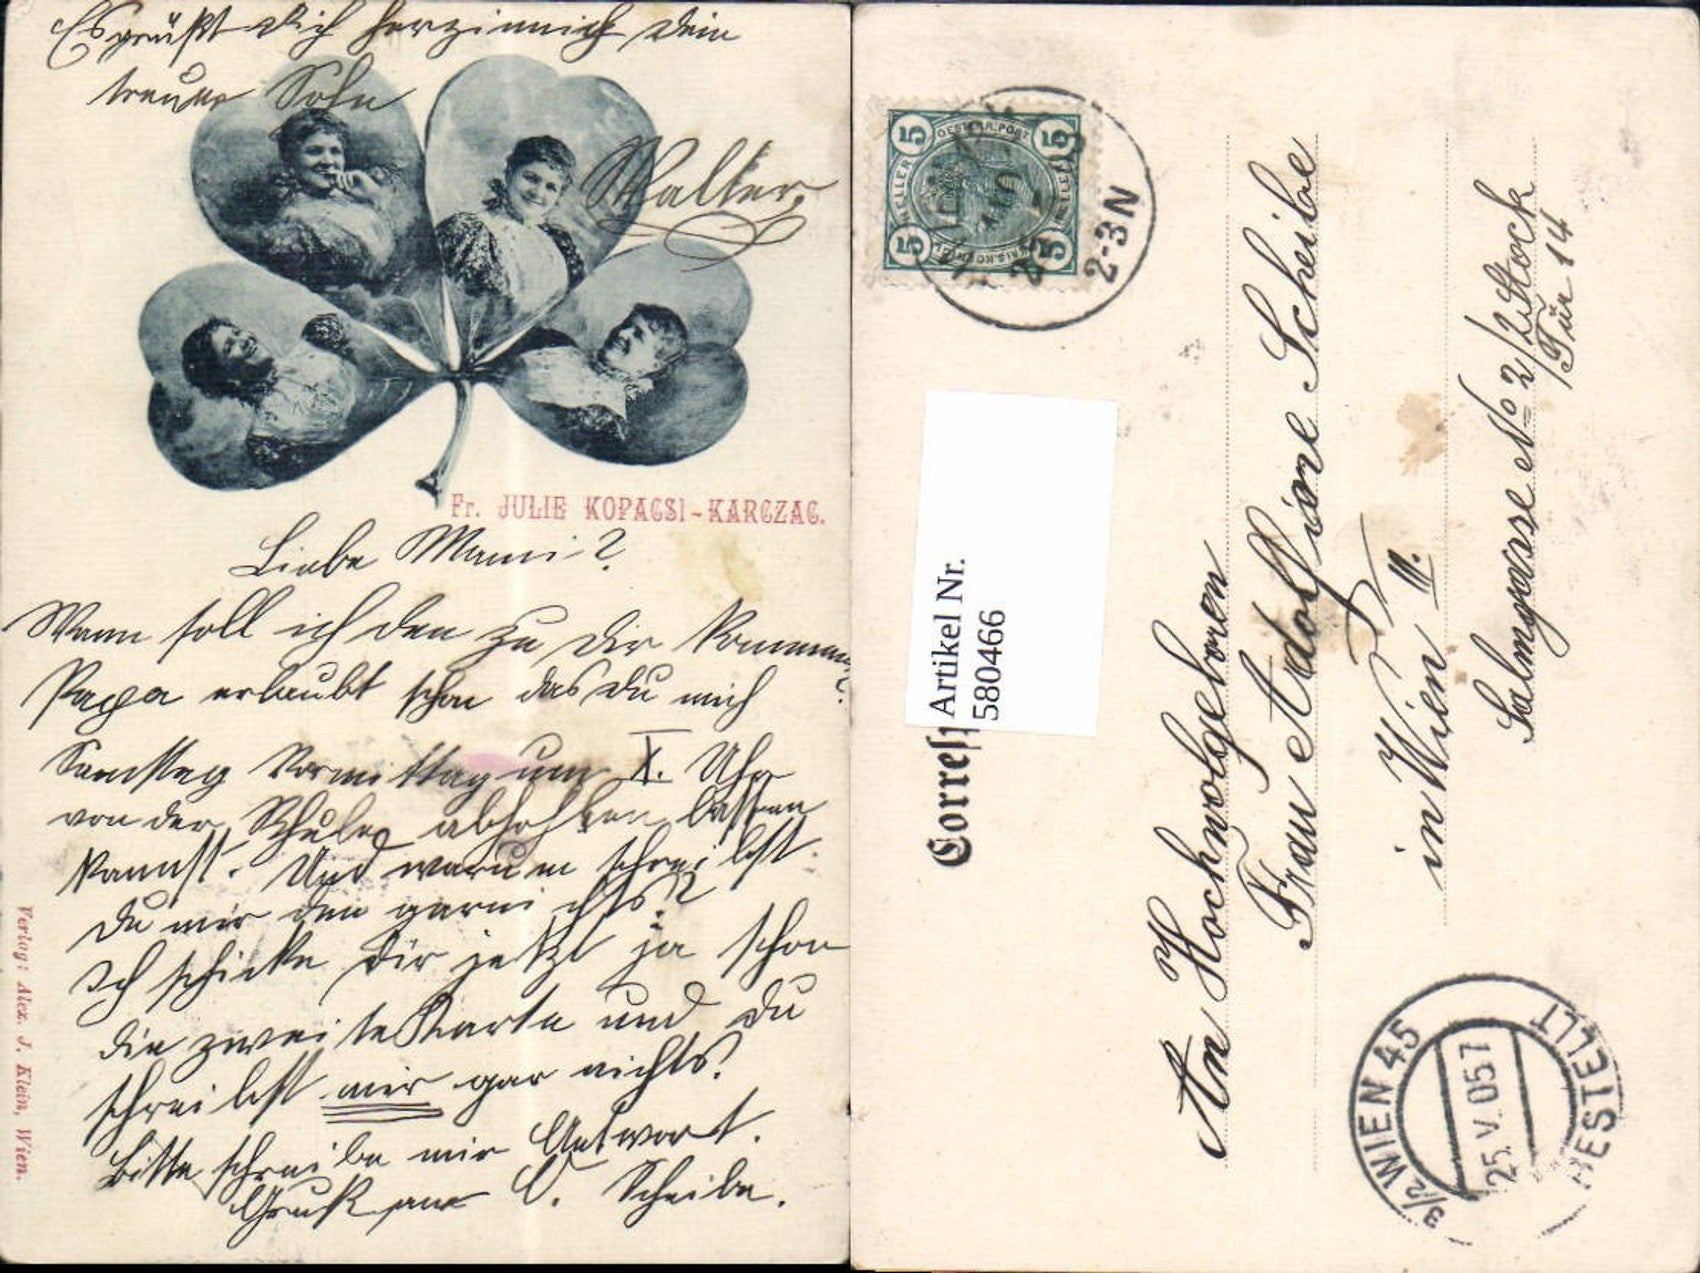 Es grüßt dich herzinnich dein
treuer Sohn
Walter,
Fr. JULIE KOPACSI-KARCZAG.
Liebe Mami?
Wann soll ich den zu dir kommen?
Papa erlaubt schon das du mich
Samstag Vormittag um X. Uhr
von der Schule abhohlen lassen
kannst. Und warum schreibst
du mir den garnichts?
Ich schicke dir jetzt ja schon
die zweite Karte und du
schreibst mir gar nichts?
Bitte schreibe mir Antwort.
Gruß an V. Scheibe.
Verlag: Alex. J. Klein, Wien.
5 5
5 5
OESTERR. POST
HELLER HELLER
2-3N
Artikel Nr.
580466
Corresp
An Hochwolgeboren
Frau Adolfione Scheibe
in Wien III.
Salmgasse No 2/2 Stock
Tür 14
3/2 WIEN 45
25.V.05.7
BESTELLT